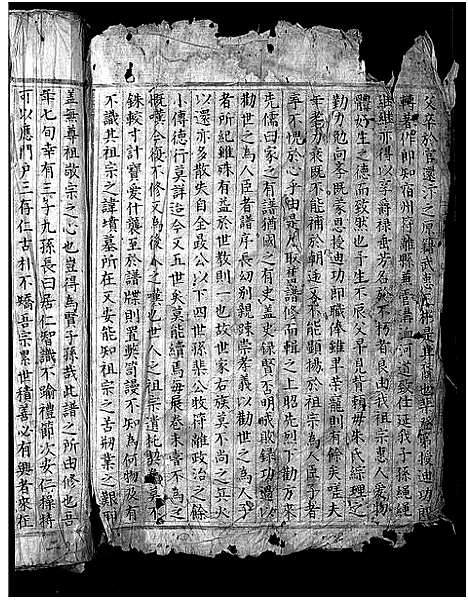 父卒於官還汀之原籍武
轉著作郎知宿州符離縣兼管勸農河道致仕逮我子孫繩繩
雖亦得以享爵祿垂芳名於不朽者良由我祖宗惠人愛物
體好生之德而致然也予生不辰父早見背賴母朱氏綜理之
勤力勉向李既蒙恩授迪功郎職俸雖卑榮寵則有餘矣嗟夫
年老力衰既不能補於朝廷又不能顯揚於祖宗為人臣子者
寧不愧於心乎由是乃取舊譜修而輯之上昭先烈下勸方來
先儒曰家之有譜猶國之有史蓋史錄賢否明戒敗錄功德以
勸世之為人臣者譜序長幼別親疎崇孝義以勸世之為人子
者所紀雖殊有益於世教則一也故世家右族莫不尚之兵火
以還亦多散失自全政公以下四世孫棐公牧符離政治之餘
小傳德行莫詳迨今又五世矣莫能續焉每展卷未嘗不為之
慨嘆今復不修又為後人之嘆也世人之祖宗遺
銖較寸計寶愛什襲至於譜牒則置弊笥謾不知為何物及有
不識其祖宗之諱墳墓所在又安能知祖宗之苦剏業之艱
蓋無尊祖敬宗之心也豈得為賢子孫哉此譜之所由修也吾
年七旬幸有三子九孫長曰居仁智識不踰禮節次安仁操持
可以應門戶三存仁古朴不驕吾宗累世積善必有興者來在